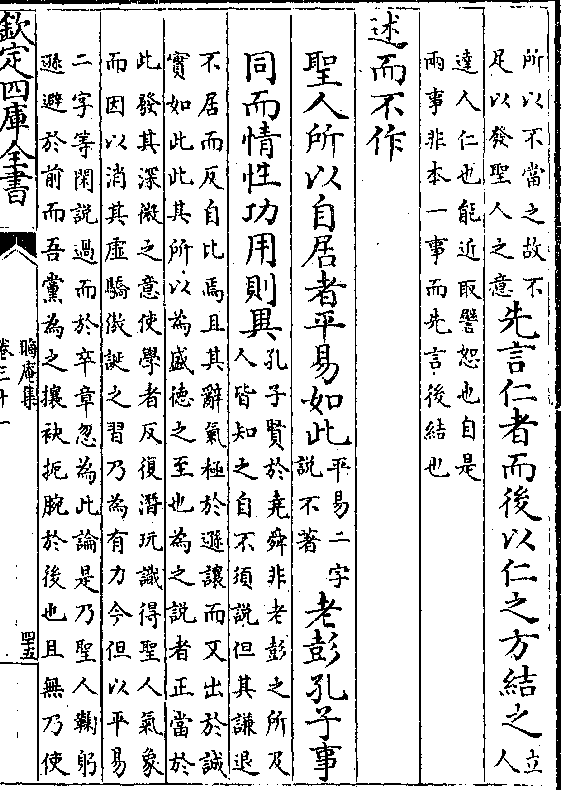 所以不當之故不
足以發聖人之意
先言仁者而後以仁之方結之
立人
達人仁也能近取譬恕也自是
兩事非本一事而先言後結也
述而不作
聖人所以自居者平易如此
平易二字
說不著
老彭孔子事
同而情性功用則異
孔子賢於堯舜非老彭之所及
人皆知之自不須說但其謙退
不居而反自比焉且其辭氣極於遜讓而又出於誠
實如此此其所以為盛德之至也為之說者正當於
此發其深微之意使學者反復潛玩識得聖人氣象
而因以消其虛驕傲誕之習乃為有力今但以平易
二字等閑說過而於卒章忽為此論是乃聖人鞠躬
遜避於前而吾黨為之攘袂扼腕於後也且無乃使
欽定四庫全書
晦庵集
卷三十一
四五